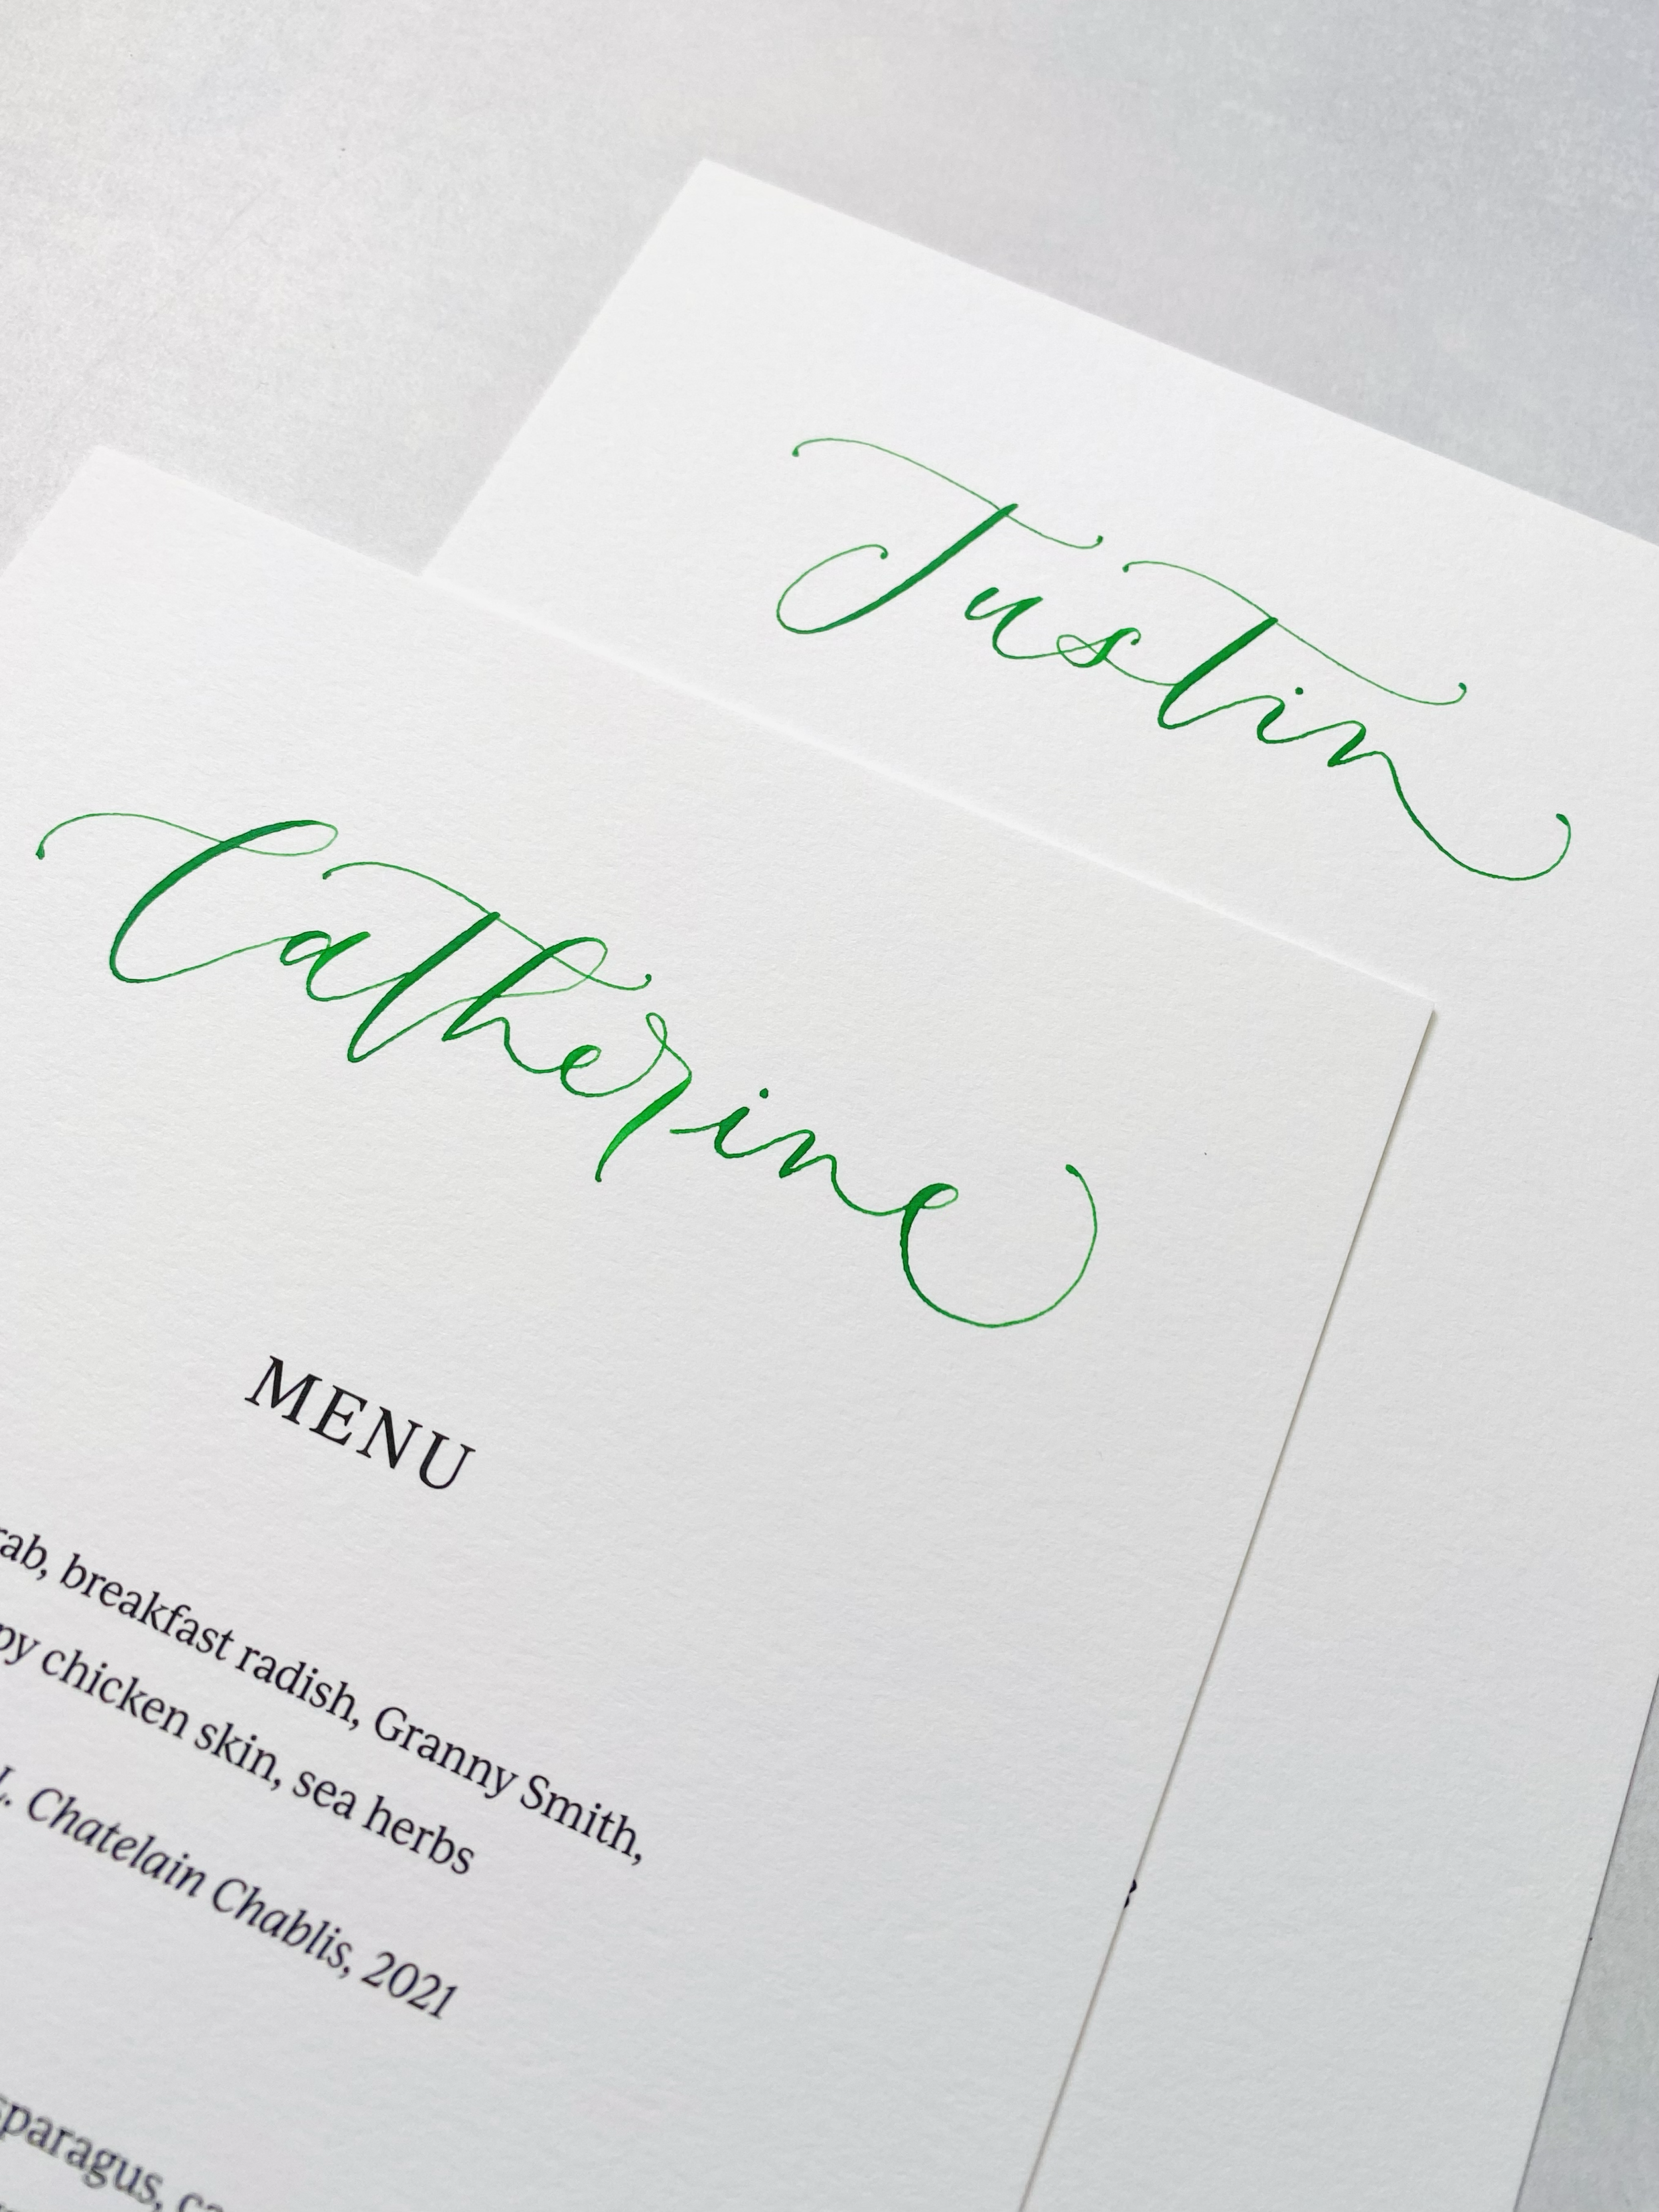 Justin
Catherine
MENU
rab, breakfast radish, Granny Smith,
py chicken skin, sea herbs
L. Chatelain Chablis, 2021
sparagus, ca